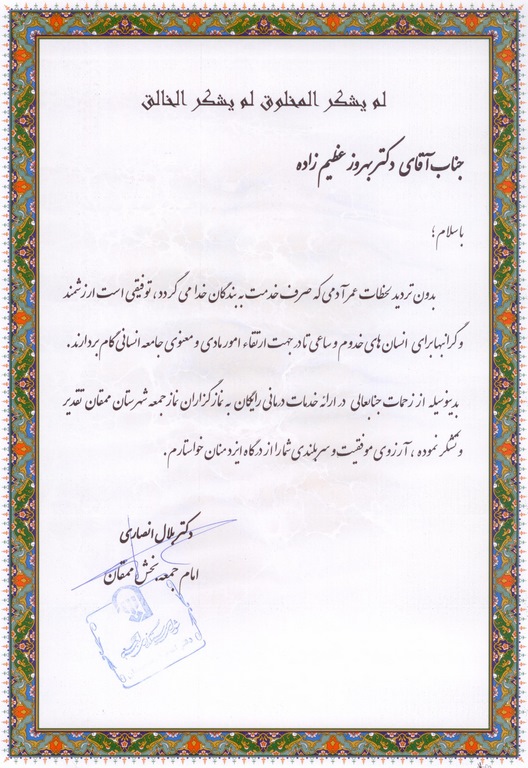 لم يشكر المخلوق لم يشكر الخالق
جناب آقای دکتر بهروز عظیم زاده
باسلام؛
بدون تردید لحظات عمر آدمی که صرف خدمت به بندگان خدا می گردد، توفیقی است ارزشمند
و گرانبها برای انسان های خدوم و ساعی تا در جهت ارتقاء امور مادی و معنوی جامعه انسانی گام بردارند.
بدینوسیله از زحمات جنابعالی در ارائه خدمات درمانی رایگان به نمازگزاران نماز جمعه شهرستان ممقان تقدیر
و تشکر نموده، آرزوی موفقیت و سربلندی شما را از درگاه ایزد منان خواستارم.
دکتر بلال انصاری
امام جمعه بخش ممقان